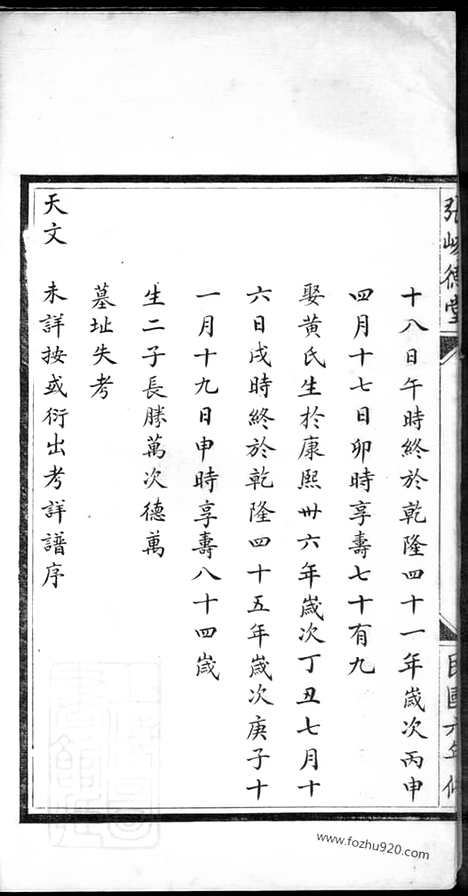 十八日午時終於乾隆四十一年歲次丙申
四月十七日卯時享壽七十有九
娶黃氏生於康熙卅六年歲次丁丑七月十
六日戌時終於乾隆四十五年歲次庚子十
一月十九日申時享壽八十四歲
生二子長勝萬次德萬
墓址失考
天文　未詳按或衍出考詳譜序
www.fozhu920.com